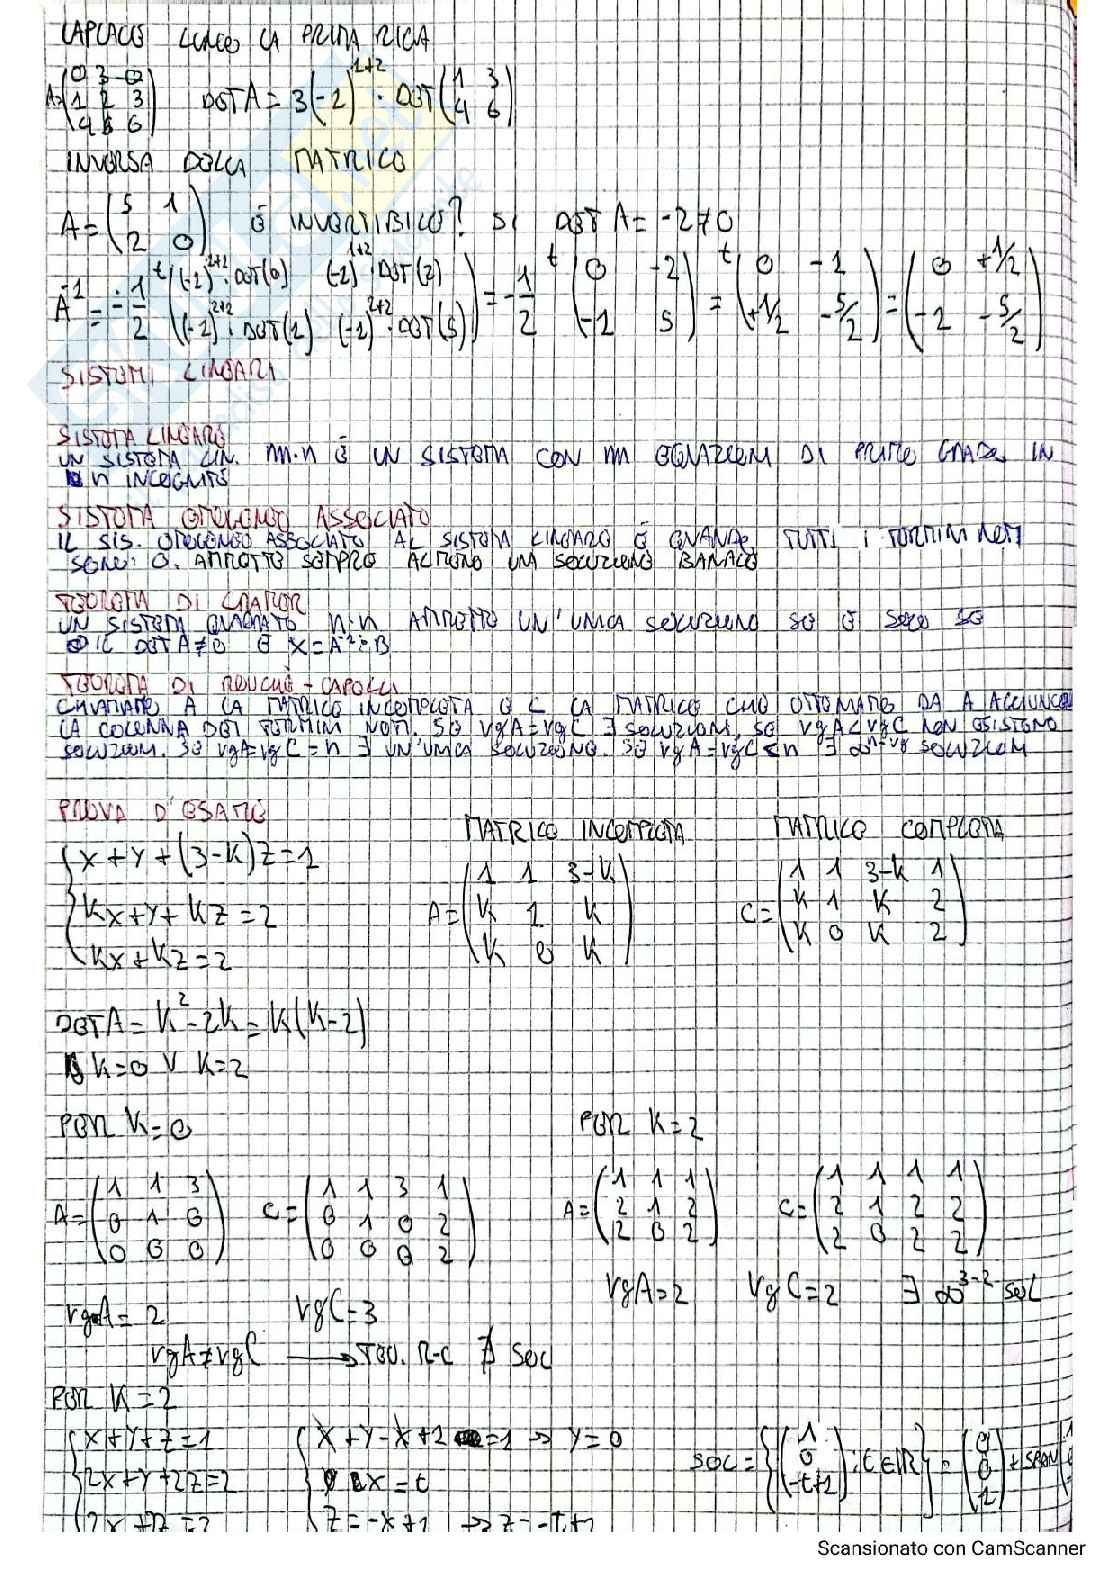 LAPLACE LUNGO LA PRIMA RIGA
A=(0 3 0
1 2 3
4 5 6) DET A = 3(-1)^1+2 · DET(1 3
4 6)
INVERSA DELLA MATRICE
A=(5 1
2 0) È INVERTIBILE? SI DET A = -2≠0
A^-1 = -1/2 t((-1)^1+1 · DET(0) (-1)^1+2 · DET(2)
(-1)^2+1 · DET(1) (-1)^2+2 · DET(5)) = -1/2 t(0 -2
-1 5) = t(0 -1
+1/2 -5/2) = (0 +1/2
-1 -5/2)
SISTEMI LINEARI
SISTEMA LINEARE
UN SISTEMA LIN. m·n È UN SISTEMA CON m EQUAZIONI DI PRIMO GRADO IN
n INCOGNITE
SISTEMA OMOGENEO ASSOCIATO
IL SIS. OMOGENEO ASSOCIATO AL SISTEMA LINEARE È QUANDO TUTTI I TERMINI NOTI
SONO 0. AMMETTE SEMPRE ALMENO UNA SOLUZIONE BANALE
TEOREMA DI CRAMER
UN SISTEMA QUADRATO n·n AMMETTE UN'UNICA SOLUZIONE SE E SOLO SE
IL DET A≠0 E X=A^-1·B
TEOREMA DI ROUCHÈ-CAPELLI
CHIAMIAMO A LA MATRICE INCOMPLETA E C LA MATRICE CHE OTTENIAMO DA A AGGIUNGENDO
LA COLONNA DEI TERMINI NOTI. SE rgA=rgC ∃ SOLUZIONI, SE rgA<rgC NON ESISTONO
SOLUZIONI. SE rgA=rgC=n ∃ UN'UNICA SOLUZIONE. SE rgA=rgC<n ∃ ∞^n-rg SOLUZIONI
PROVA D'ESAME
MATRICE INCOMPLETA MATRICE COMPLETA
{x+y+(3-k)z=1
kx+y+kz=2
kx+kz=2
A=(1 1 3-k
k 1 k
k 0 k)
C=(1 1 3-k 1
k 1 k 2
k 0 k 2)
DET A = k^2-2k = k(k-2)
k=0 ∨ k=2
PER k=0 PER k=2
A=(1 1 3
0 1 0
0 0 0) C=(1 1 3 1
0 1 0 2
0 0 0 2)
A=(1 1 1
2 1 2
2 0 2) C=(1 1 1 1
2 1 2 2
2 0 2 2)
rgA=2 rgC=2 ∃ ∞^3-2 SOL
rgA=2 rgC=3
rgA≠rgC → TEO. R-C ∄ SOL
PER k=2
{x+y+z=1
2x+y+2z=2
2x+2z=2
{x+y-x+1 =1 → y=0
x=t
z=-x+1 → z=-t+1
SOL={(1
0
-t+1) : t∈R} = (0
0
1) + SPAN(1
Scansionato con CamScanner